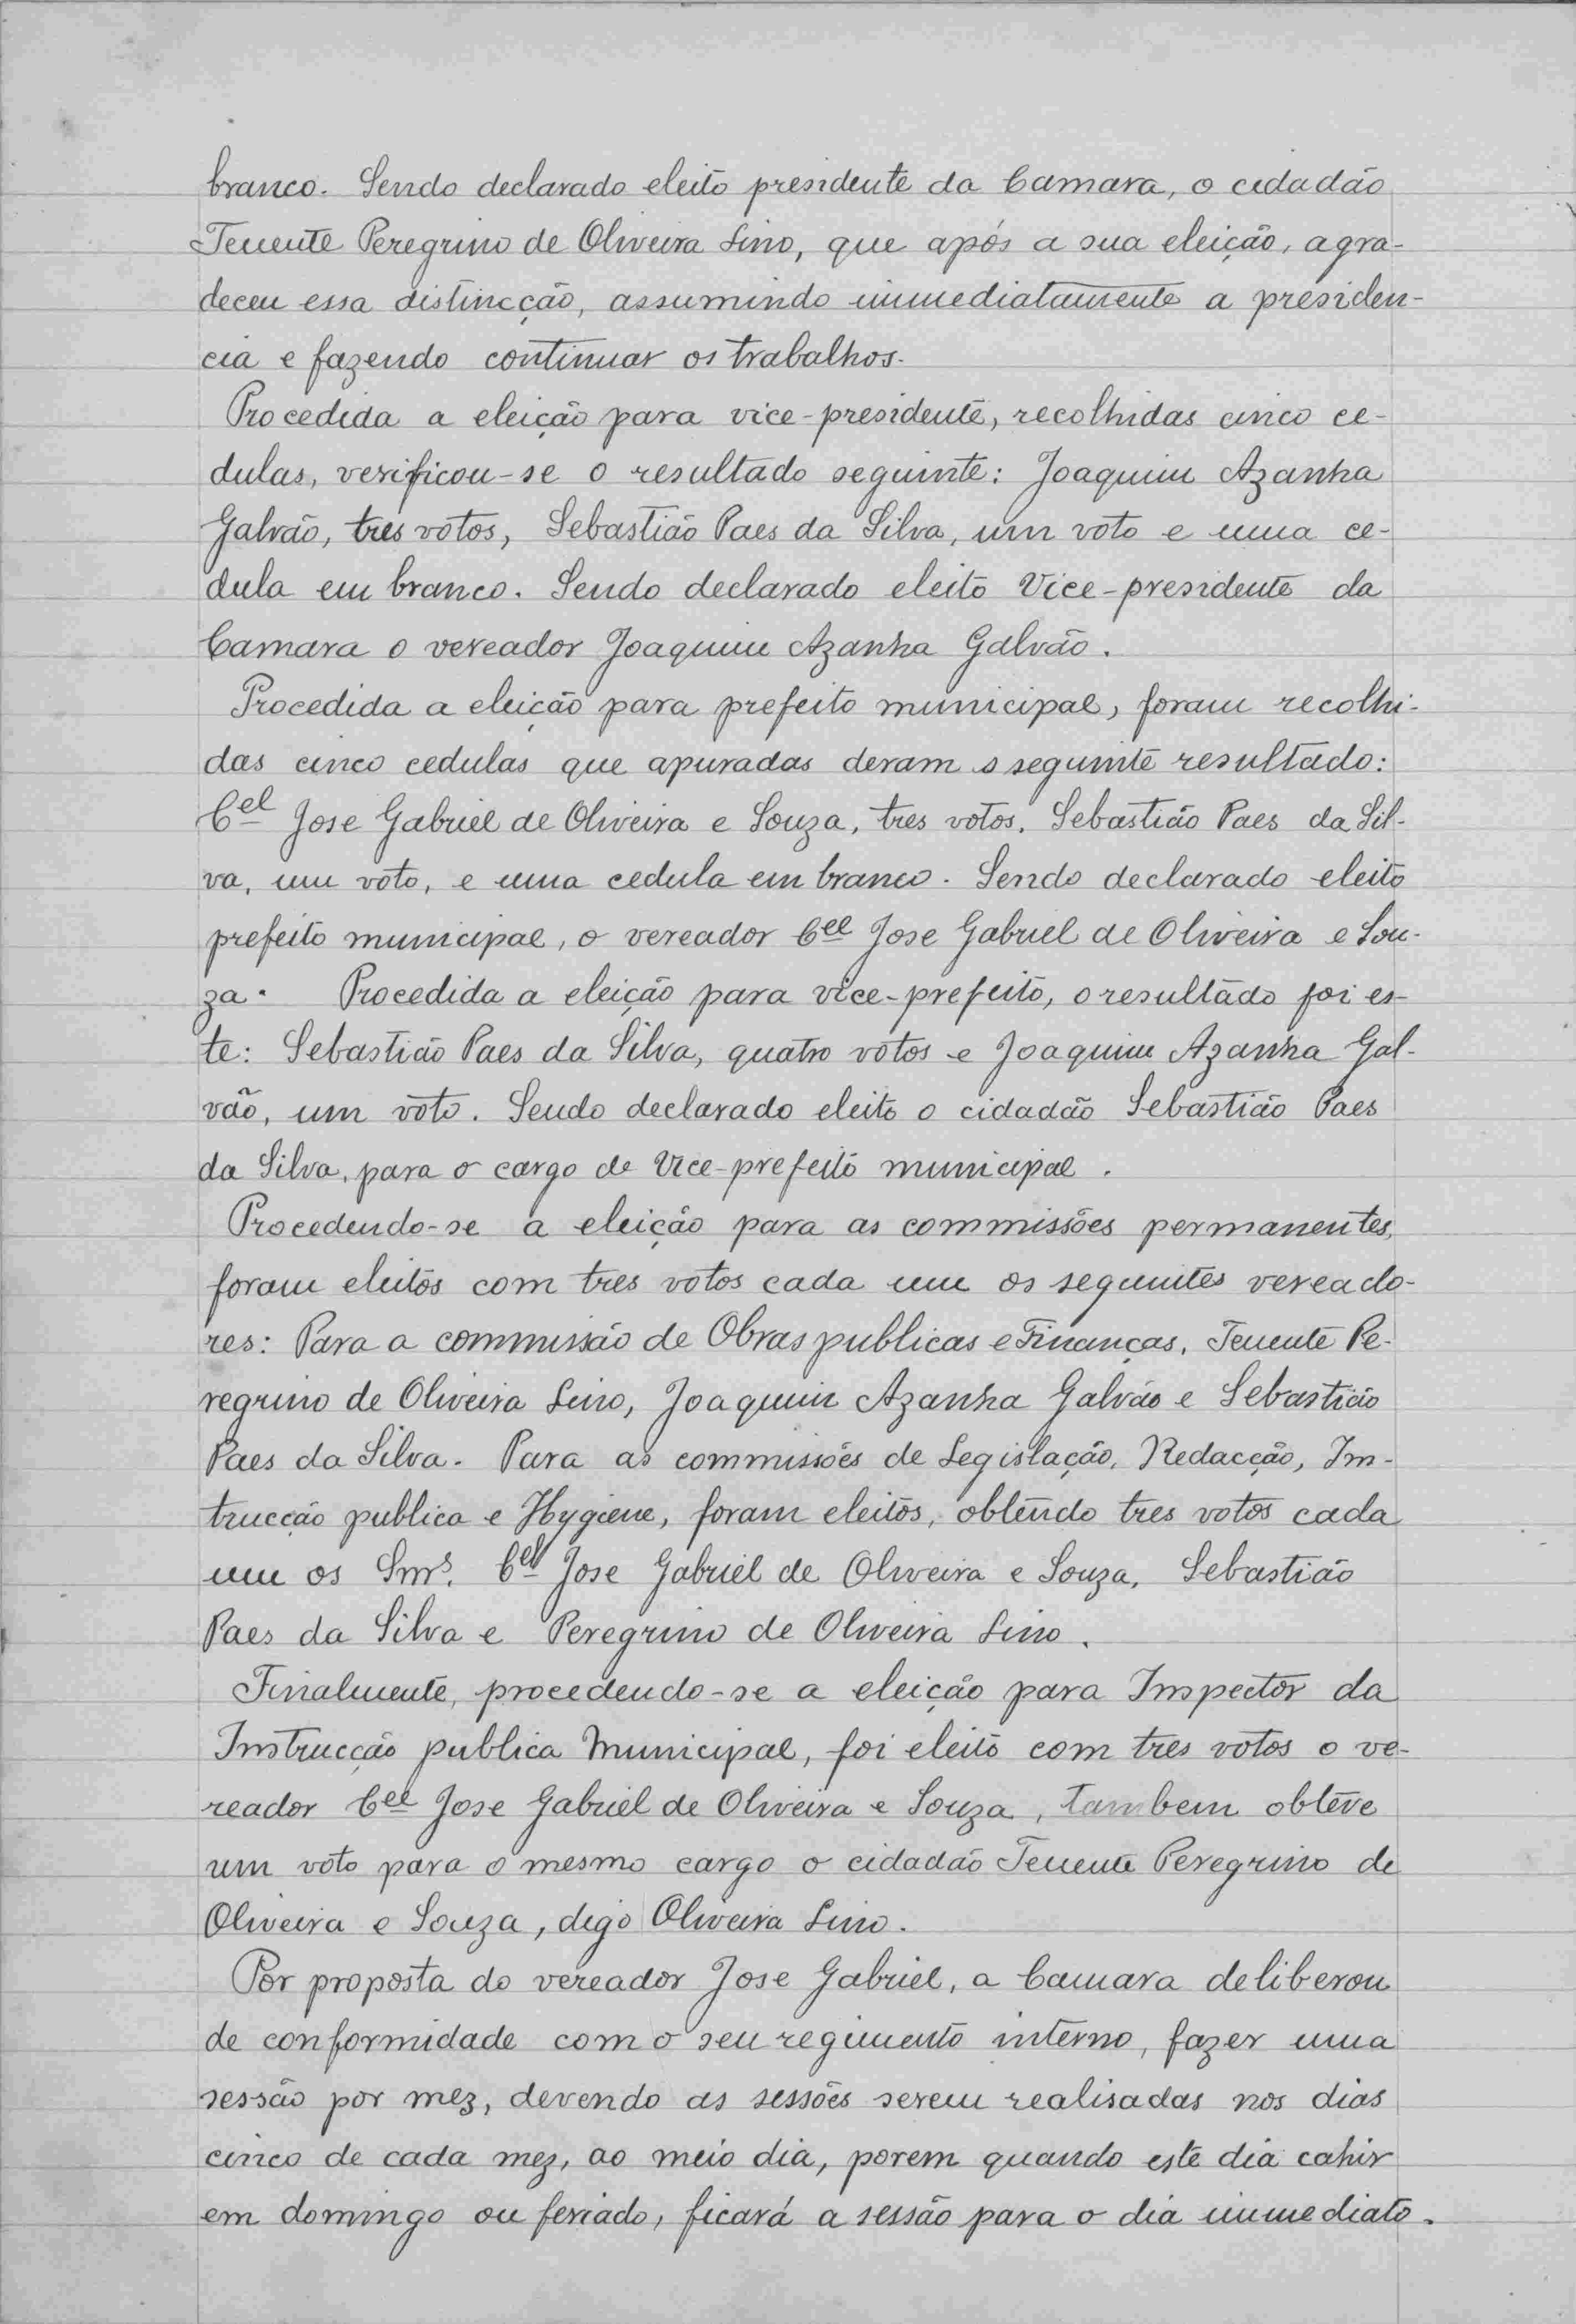 branco. Sendo declarado eleito presidente da Camara, o cidadão
Tenente Peregrino de Oliveira Lino, que após a sua eleição, agra-
deceu essa distincção, assumindo immediatamente a presiden-
cia e fazendo continuar os trabalhos.
Procedida a eleição para vice-presidente, recolhidas cinco ce-
dulas, verificou-se o resultado seguinte: Joaquim Azanha
Galvão, tres votos, Sebastião Paes da Silva, um voto e uma ce-
dula em branco. Sendo declarado eleito Vice-presidente da
Camara o vereador Joaquim Azanha Galvão.
Procedida a eleição para prefeito municipal, foram recolhi-
das cinco cedulas que apuradas deram o seguinte resultado:
Cel Jose Gabriel de Oliveira e Souza, tres votos, Sebastião Paes da Sil-
va, um voto, e uma cedula em branco. Sendo declarado eleito
prefeito municipal, o vereador Cel Jose Gabriel de Oliveira e Sou-
za. Procedida a eleição para vice-prefeito, o resultado foi es-
te: Sebastião Paes da Silva, quatro votos e Joaquim Azanha Gal-
vão, um voto. Sendo declarado eleito o cidadão Sebastião Paes
da Silva, para o cargo de Vice-prefeito municipal.
Procedendo-se a eleição para as commissões permanentes,
foram eleitos com tres votos cada um os seguintes vereado-
res: Para a commissão de Obras publicas e Finanças, Tenente Pe-
regrino de Oliveira Lino, Joaquim Azanha Galvão e Sebastião
Paes da Silva. Para as commissões de Legislação, Redacção, Ins-
trucção publica e Hygiene, foram eleitos, obtendo tres votos cada
um os Snrs. Cel Jose Gabriel de Oliveira e Souza, Sebastião
Paes da Silva e Peregrino de Oliveira Lino.
Finalmente, procedendo-se a eleição para Inspector da
Instrucção publica Municipal, foi eleito com tres votos o ve-
reador Cel Jose Gabriel de Oliveira e Souza, tambem obteve
um voto para o mesmo cargo o cidadão Tenente Peregrino de
Oliveira e Souza, digo Oliveira Lino.
Por proposta do vereador Jose Gabriel, a Camara deliberou
de conformidade com o seu regimento interno, fazer uma
sessão por mez, devendo as sessões serem realisadas nos dias
cinco de cada mez, ao meio dia, porem quando este dia cahir
em domingo ou feriado, ficará a sessão para o dia immediato.